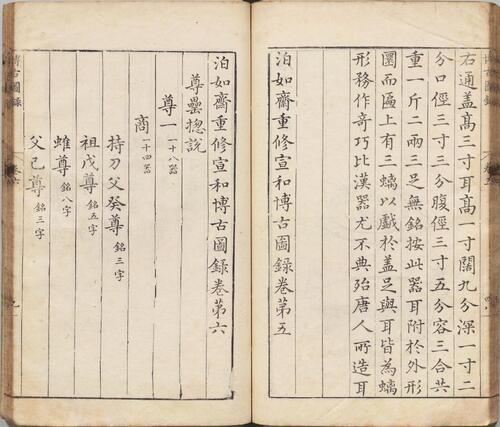 右通蓋高三寸耳高一寸闊九分深一寸二
分口徑三寸三分腹徑三寸五分容三合共
重一斤二兩三足無銘按此器耳附於外形
圜而匾上有三螭以戲於蓋足與耳皆為螭
形務作奇巧比漢器尤不典殆唐人所造耳
泊如齋重修宣和博古圖錄卷第五
泊如齋重修宣和博古圖錄卷第六
尊罍總說
尊一 一十八器
商 一十四器
持刀父癸尊 銘三字
祖戊尊 銘五字
蜼尊 銘八字
父己尊 銘三字
博古圖錄
卷六